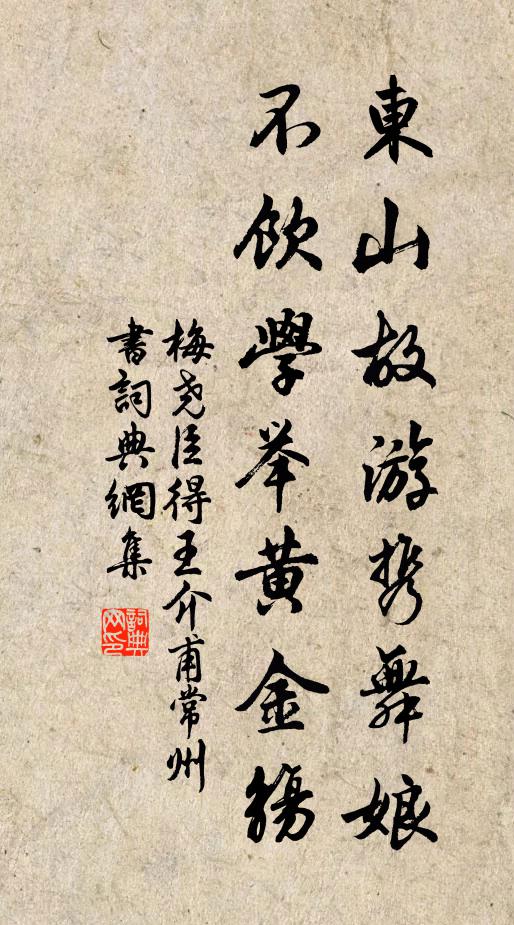 東山故游携舞娘
不飲學举黄金觴
梅尧臣得王介甫常州
書詞典網集
詞典
网印